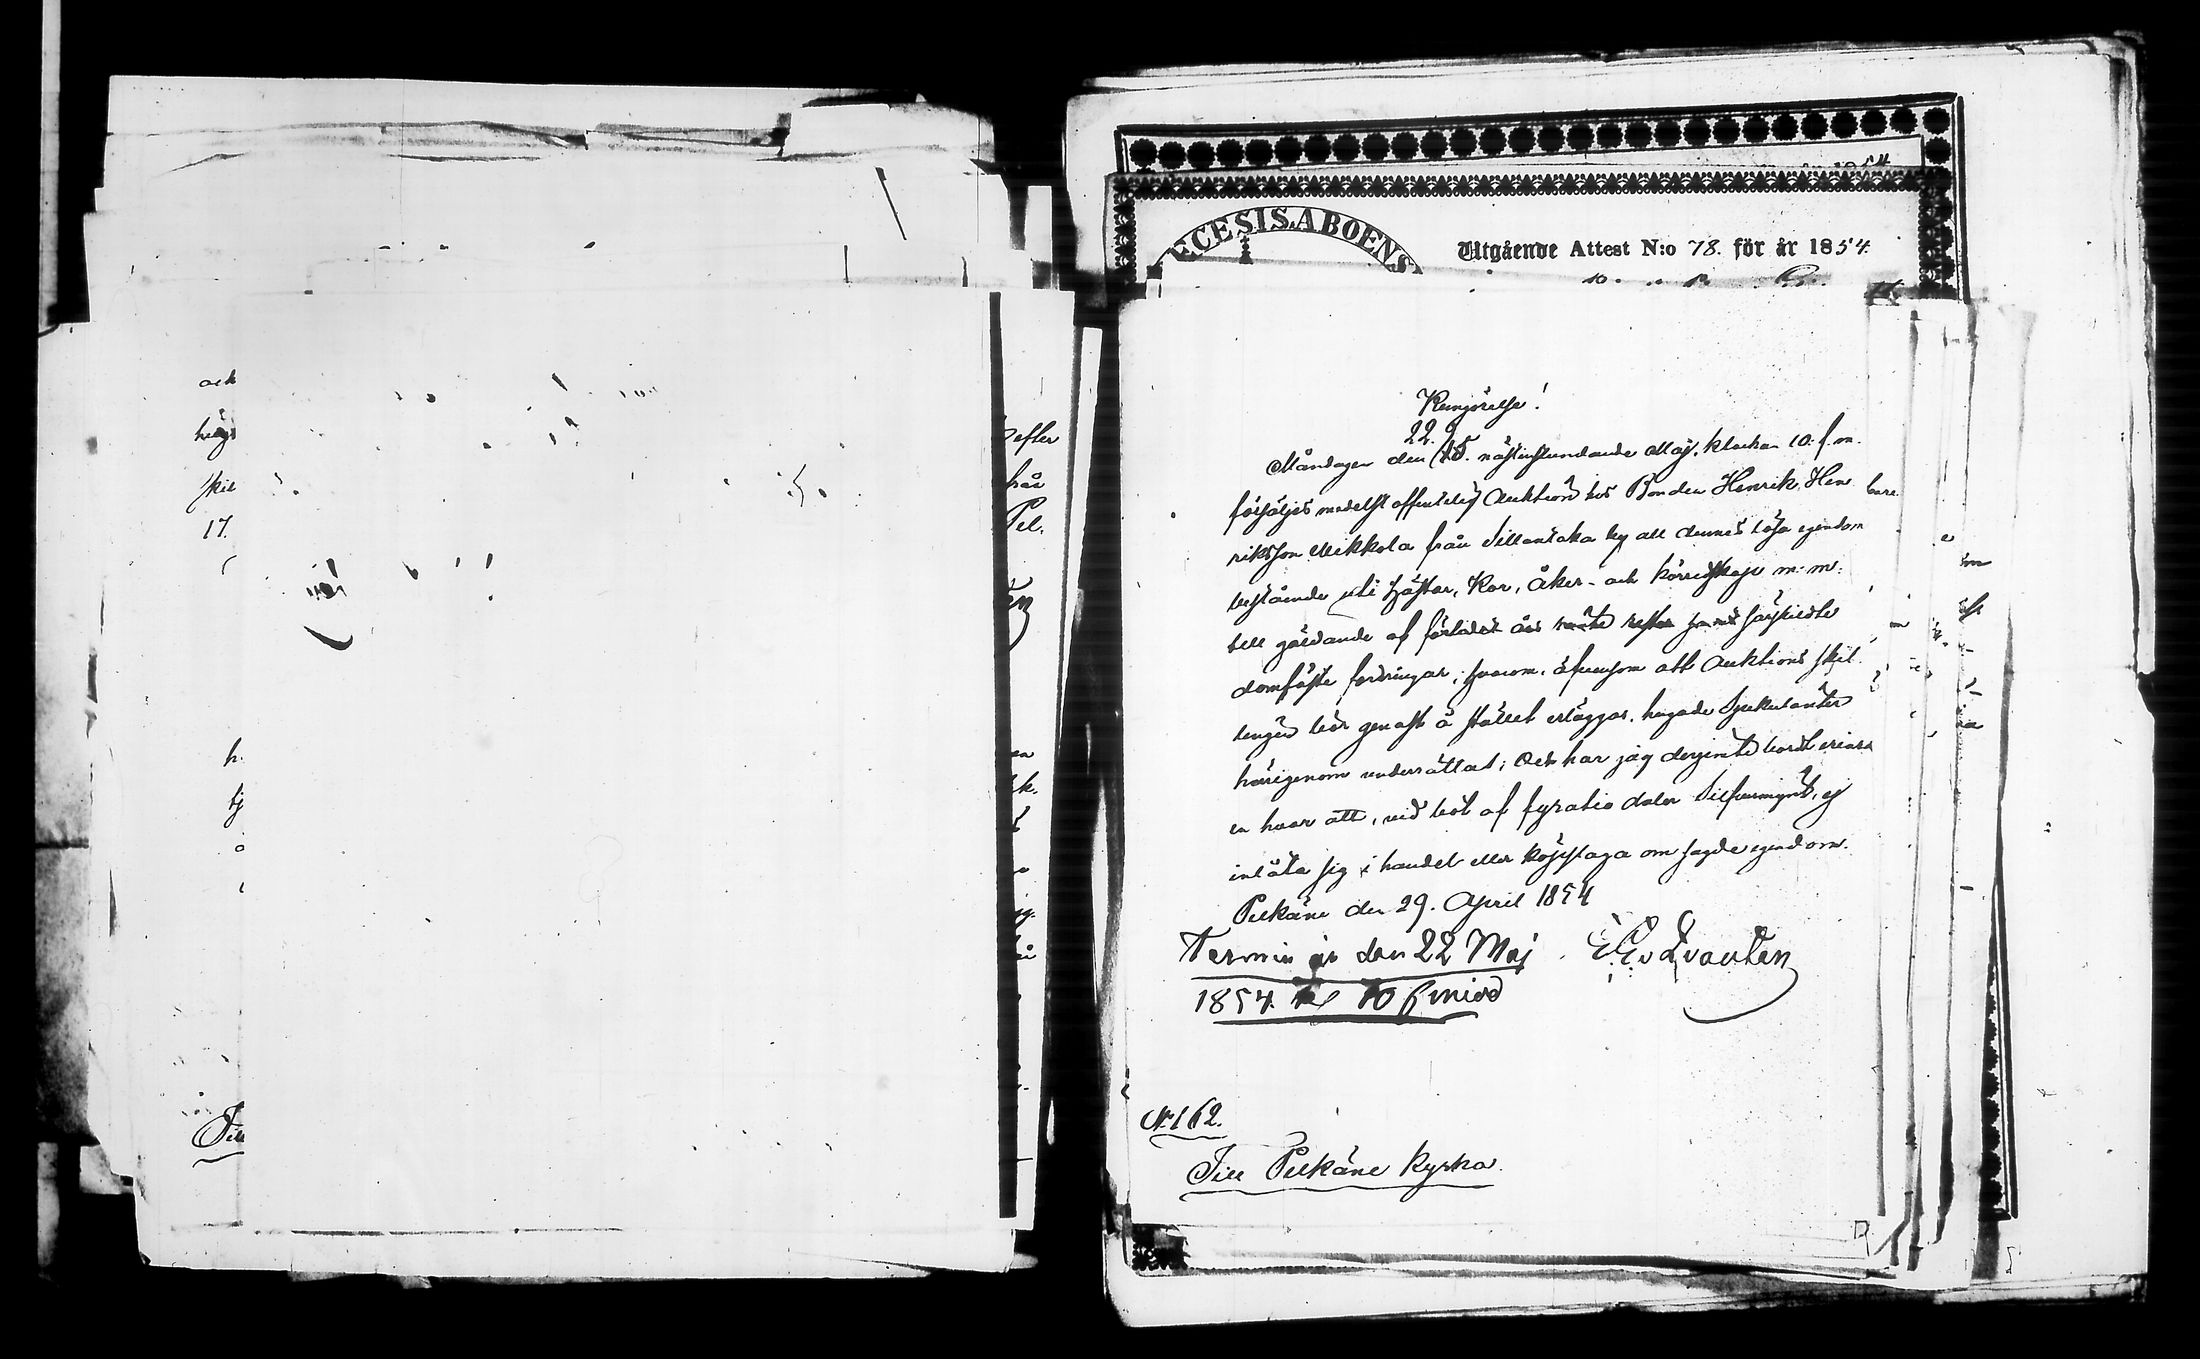 och
skil
17.
h.
Till
efter
från
Pel.
ECESIS.ABOENS
Utgående Attest N:o 78. för år 1854.
Kungörelse!
22.
Måndagen den 15. nästinstundande Maji, klockan 10. f. m.
försäljes medelst offentelig Auktion hos Bonden Henrik Hen
riksson Mikkola från Sillantaka by all dennes lösa egendom
bestående uti Hästar, Kor, åker- och körredskap m: m:
till gäldande af förledet års särskildte
domfäste fordringar; hvarom, äfvensom att Auktions skil
lingen bör genast å stället erläggas, hugade Spekulanter
härigenom underrättas; Och har jag derjemte bordt erinra
en hvar att, vid bot af fyratio daler Silfvermynt, ej
inlåta sig i handel eller köpslaga om sagde egendom.
Pelkäne den 29. April 1854
Termin är den 22 Maj
1854. kl 10 f midd
N:162.
Till Pelkäne Kyrka.